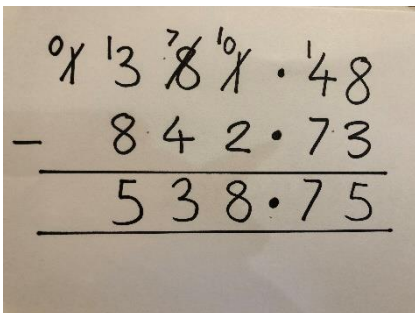 0 1 ¹3 7 8 10 1 . ¹4 8
− 8 4 2 . 7 3
5 3 8 . 7 5